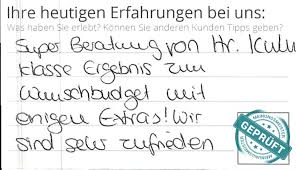 Ihre heutigen Erfahrungen bei uns:
Was haben Sie erlebt? Können Sie anderen Kunden Tipps geben?
Super Beratung von Hr.
klasse Ergebnis zum
Wunschbudget mit
einigen Extras! Wir
sind sehr zufrieden
GEPRÜFT